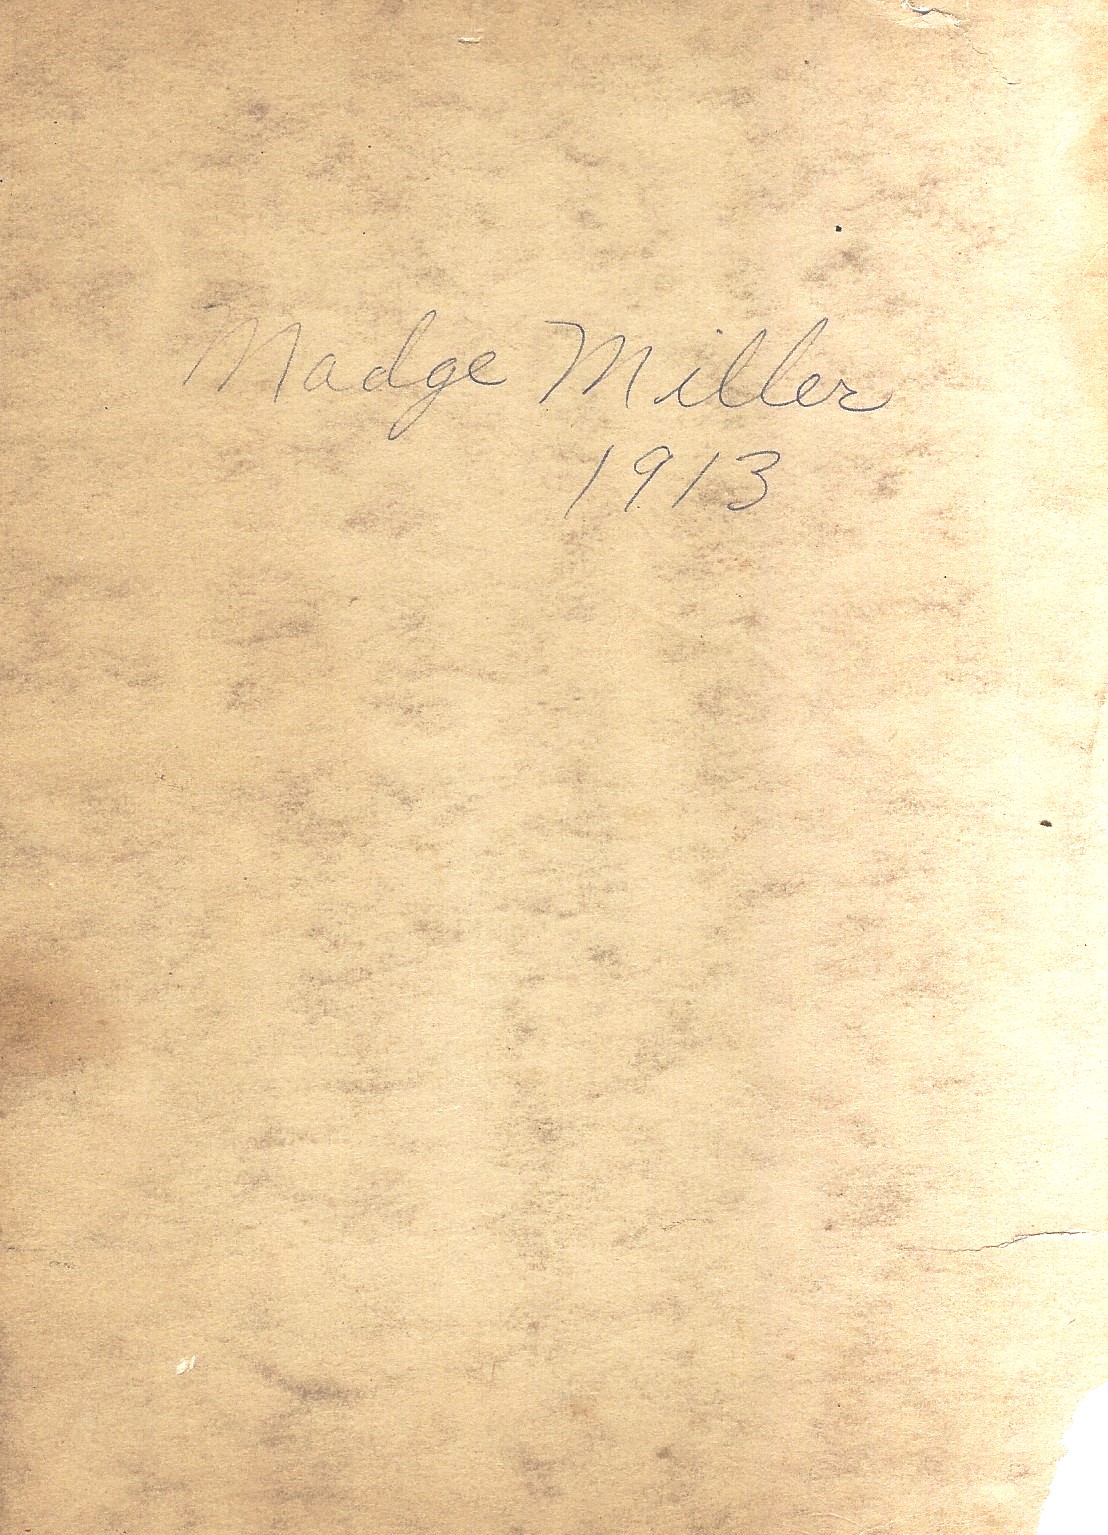 Madge Miller
1913